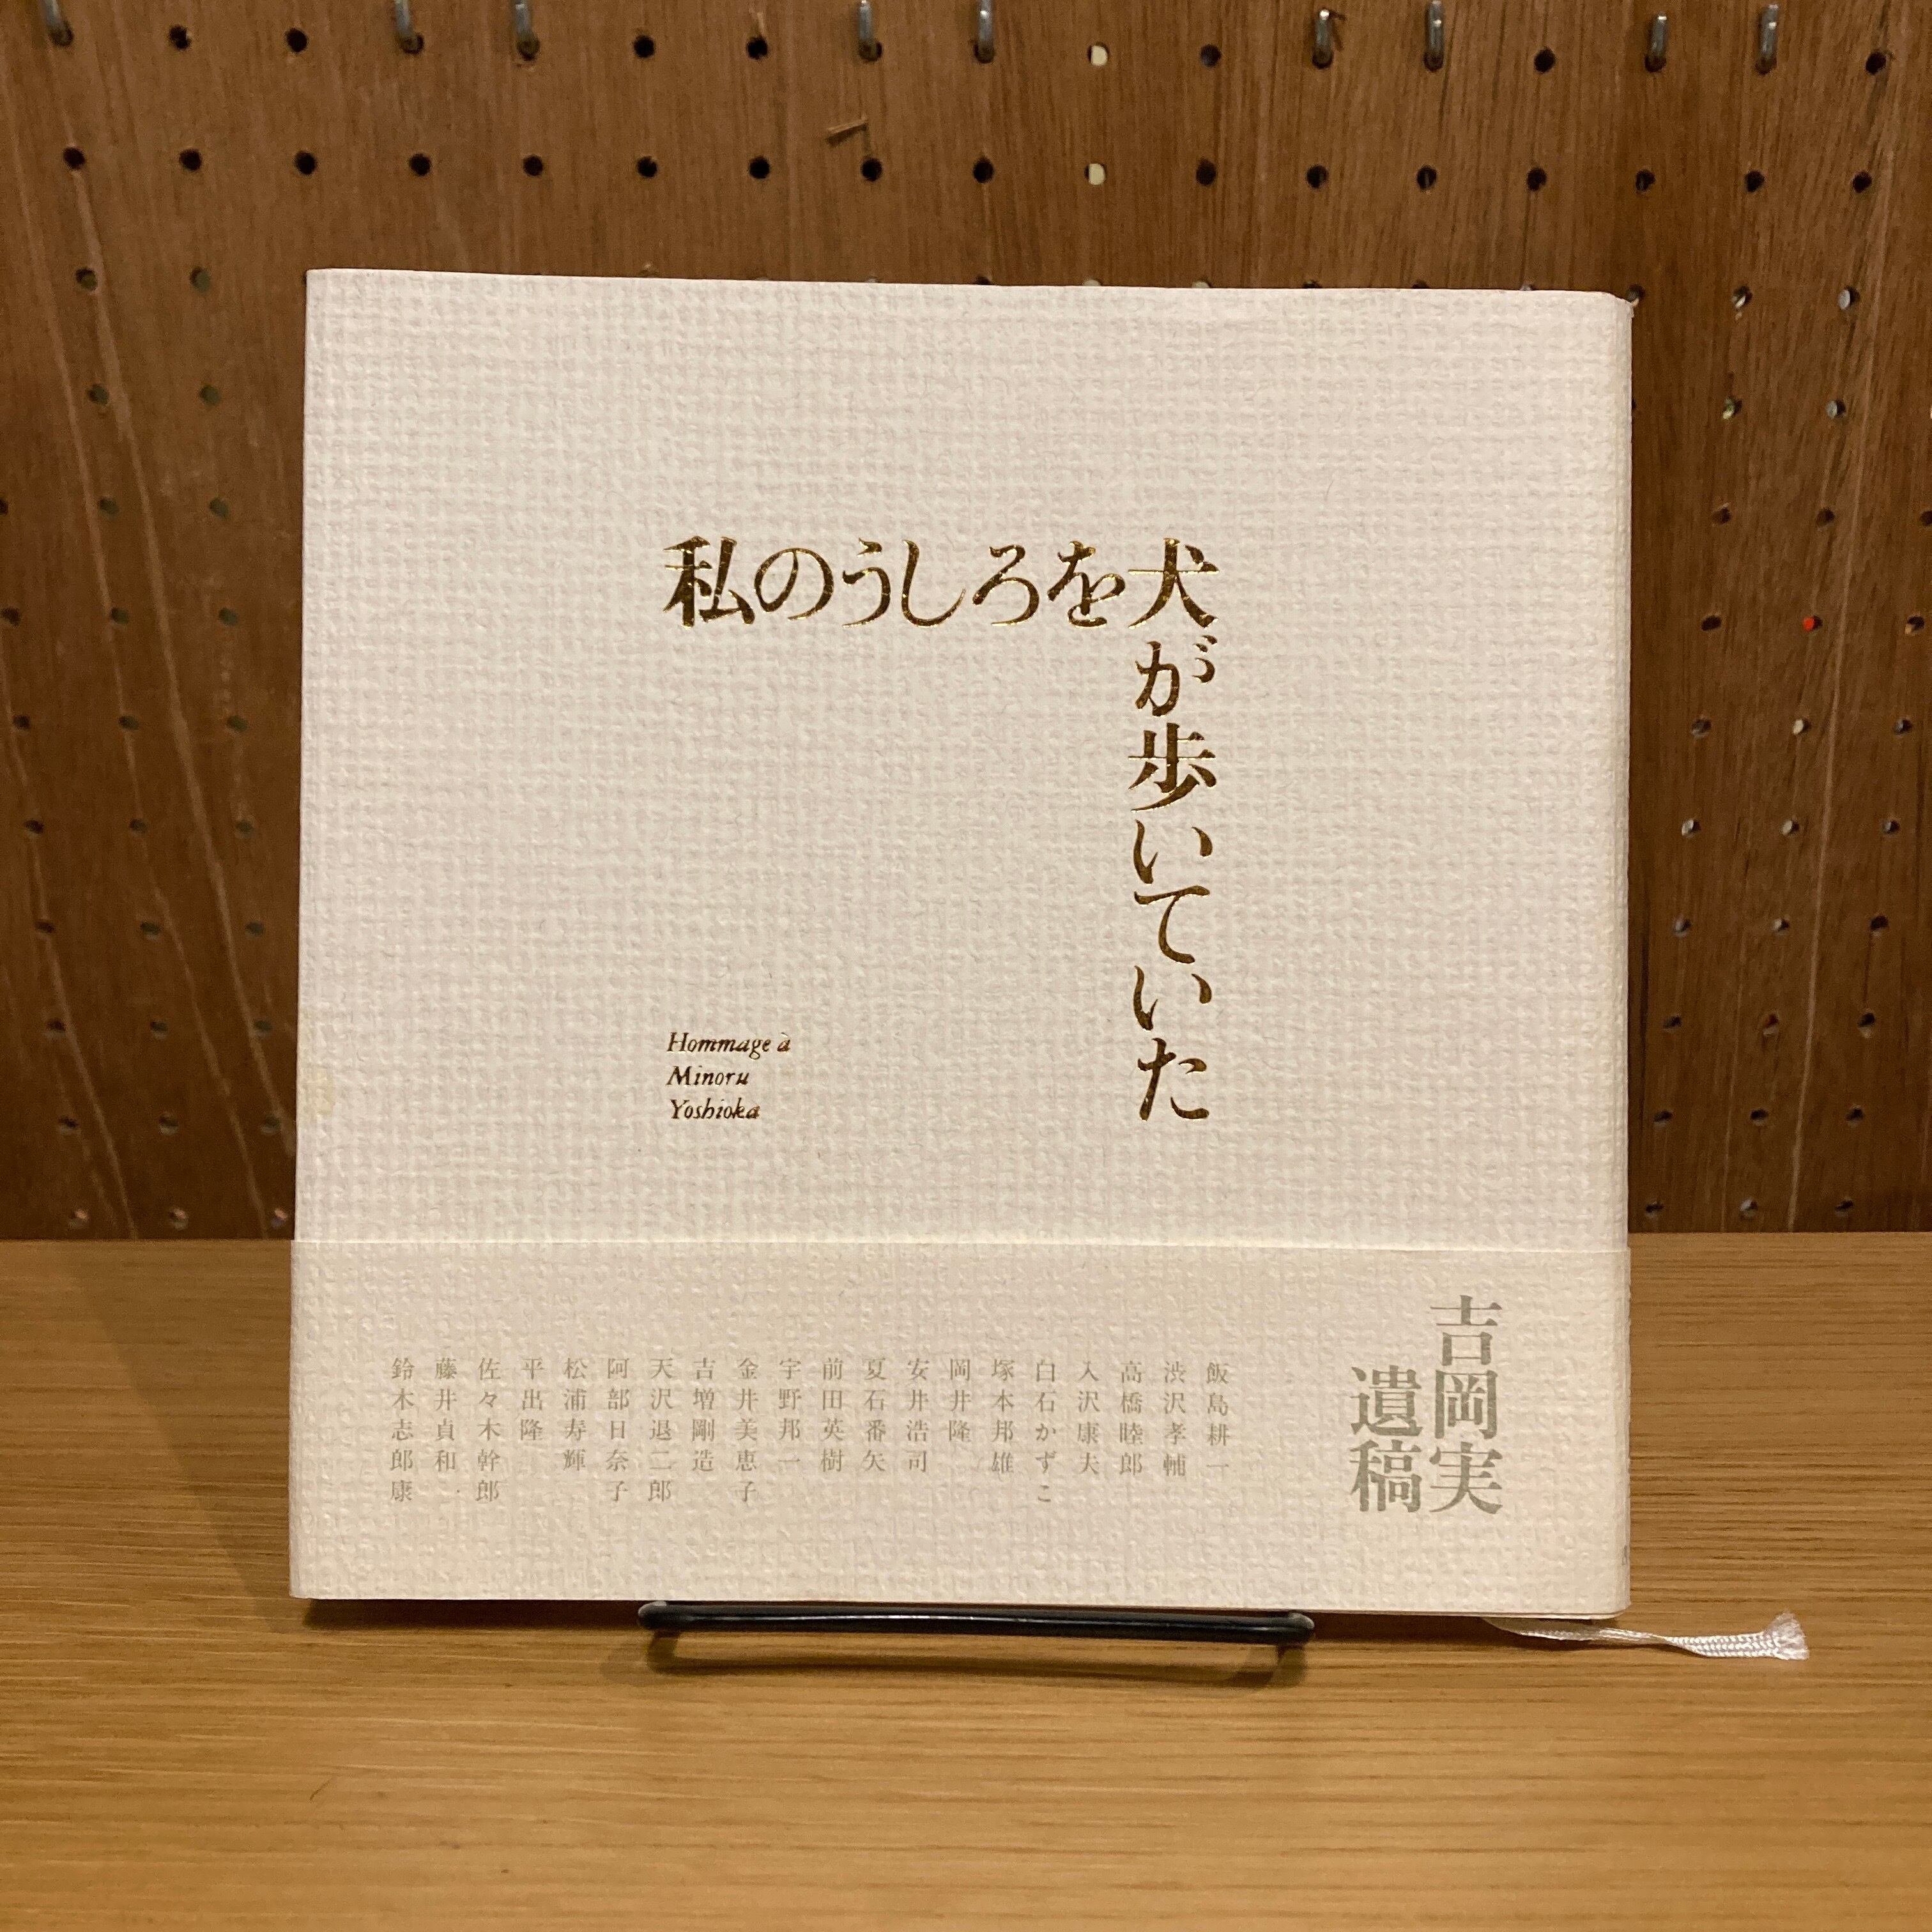 私のうしろを犬が歩いていた
Hommage à
Minoru
Yoshioka
吉岡実
遺稿
飯島耕一
渋沢孝輔
高橋睦郎
入沢康夫
白石かずこ
塚本邦雄
岡井隆
安井浩司
夏石番矢
前田英樹
宇野邦一
金井美恵子
吉増剛造
天沢退二郎
阿部日奈子
松浦寿輝
平出隆
佐々木幹郎
藤井貞和
鈴木志郎康